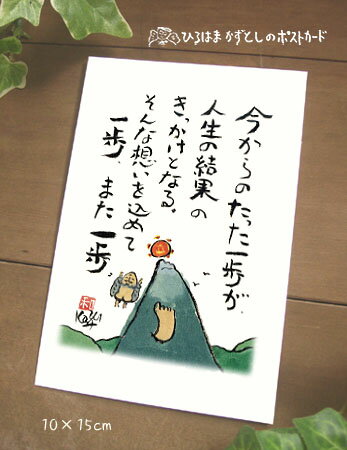 ひろはまかずとしのポストカード
今からのたった一歩が、
人生の結果の
きっかけとなる。
そんな想いを込めて
一歩、また一歩。
和
Kazu
10×15cm